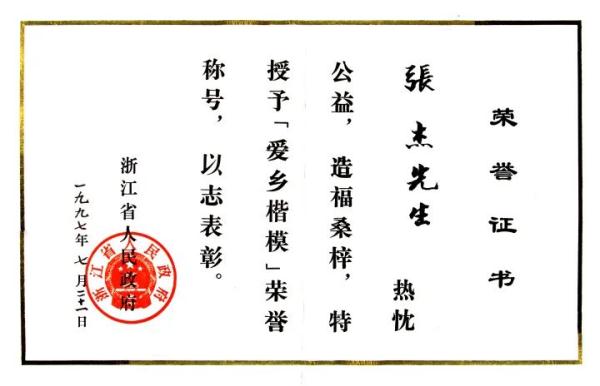 荣誉证书
張杰先生 热忱
公益，造福桑梓，特
授予「爱乡楷模」荣誉
称号，以志表彰。
浙江省人民政府
一九九七年七月二十一日
浙江省人民政府